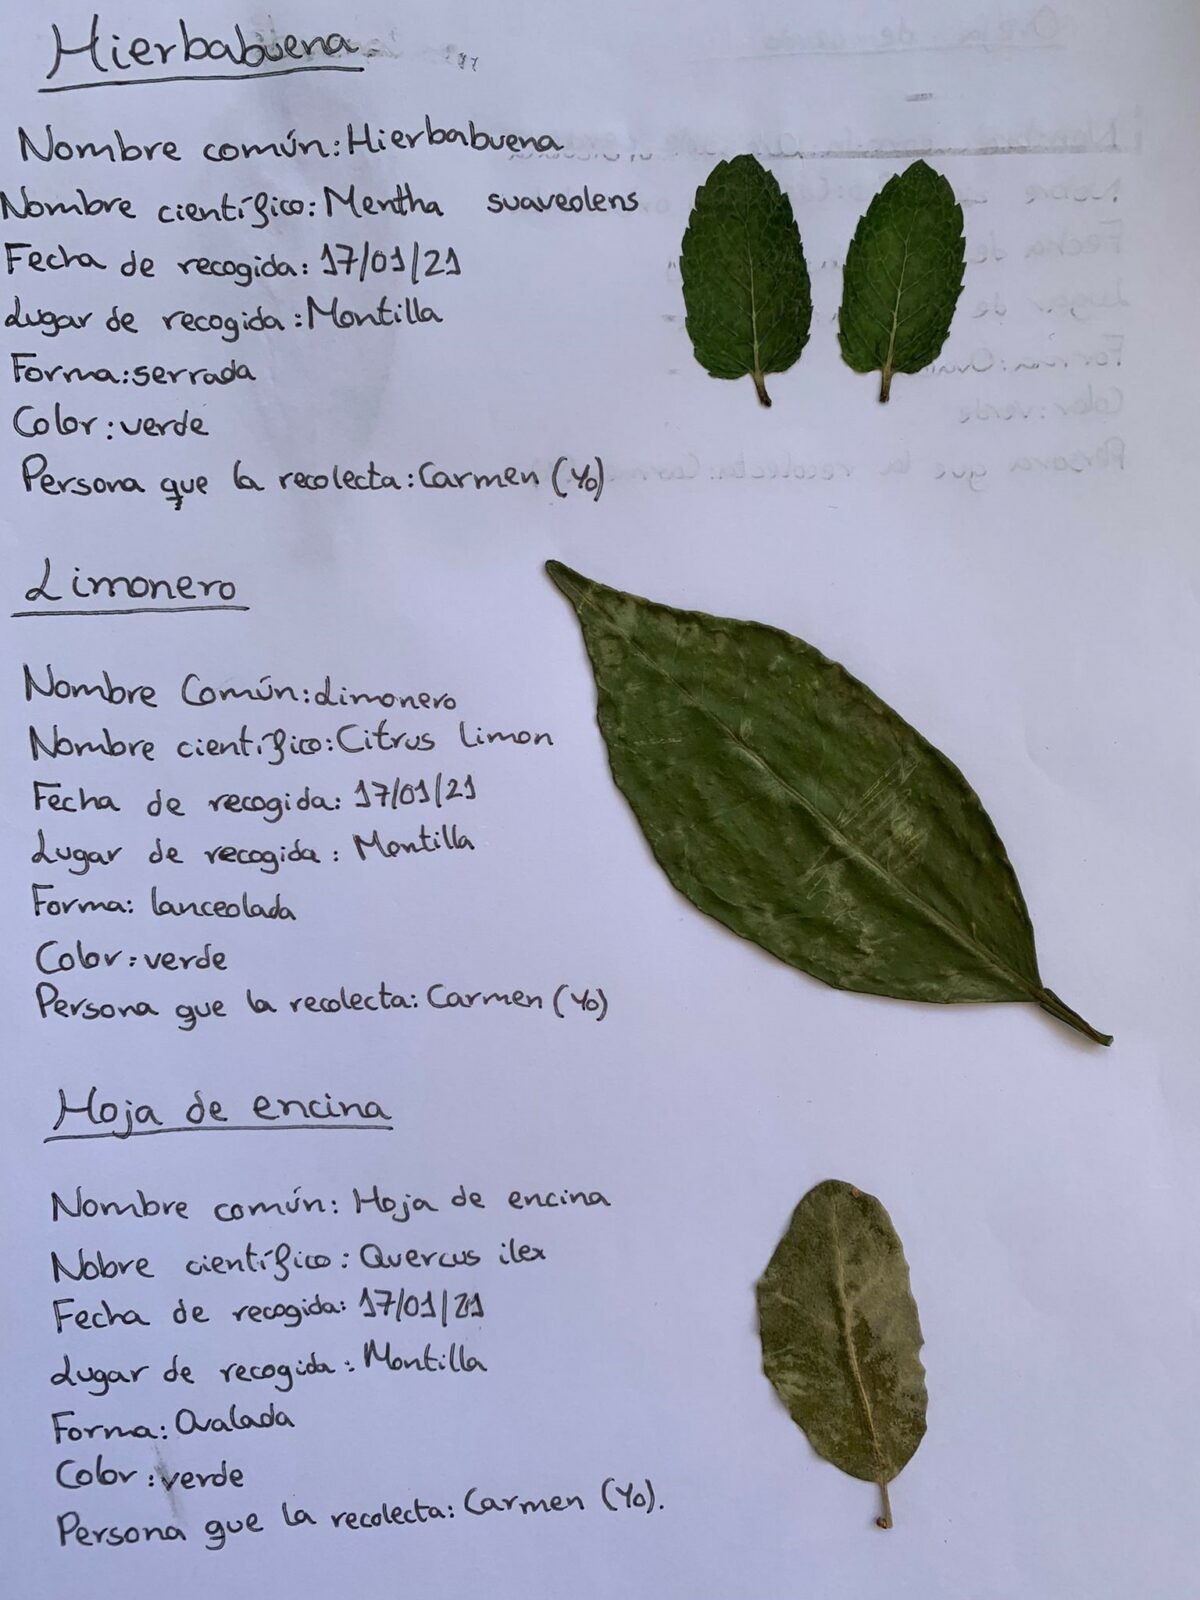 Hierbabuena
Nombre común: Hierbabuena
Nombre científico: Mentha suaveolens
Fecha de recogida: 17/01/21
Lugar de recogida: Montilla
Forma: serrada
Color: verde
Persona que la recolecta: Carmen (Yo)
Limonero
Nombre Común: Limonero
Nombre científico: Citrus limon
Fecha de recogida: 17/01/21
Lugar de recogida: Montilla
Forma: lanceolada
Color: verde
Persona que la recolecta: Carmen (Yo)
Hoja de encina
Nombre común: Hoja de encina
Nobre científico: Quercus ilex
Fecha de recogida: 17/01/21
Lugar de recogida: Montilla
Forma: Ovalada
Color: verde
Persona que la recolecta: Carmen (Yo).